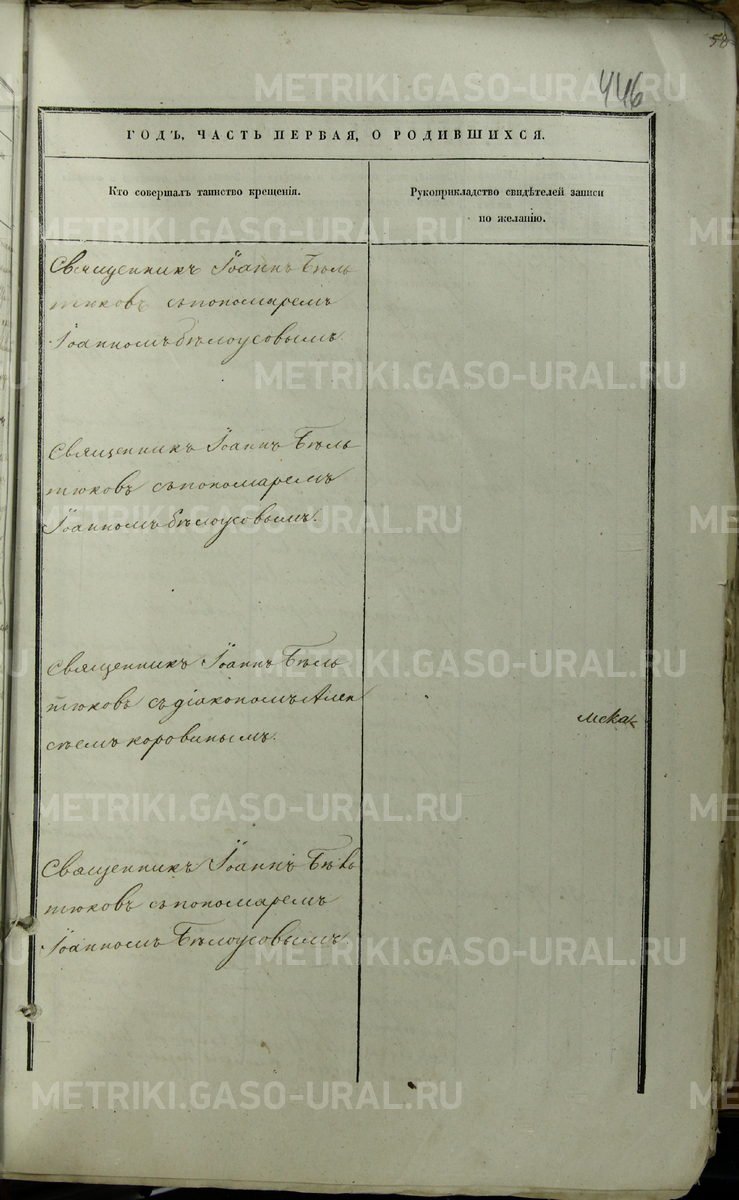 58
446
ГОДЪ, ЧАСТЬ ПЕРВАЯ, О РОДИВШИХСЯ.
Кто совершалъ таинство крещенія.
Рукоприкладство свидѣтелей записи
по желанію.
Священникъ Іоаннъ Бѣль
тюковъ съ пономаремъ
Іоанномъ Бѣлоусовымъ.
Священникъ Іоаннъ Бѣль
тюковъ съ пономаремъ
Іоанномъ Бѣлоусовымъ.
Священникъ Іоаннъ Бѣль
тюковъ съ діакономъ Алек
сѣемъ Коровинымъ.
Священникъ Іоаннъ Бѣль
тюковъ съ пономаремъ
Іоанномъ Бѣлоусовымъ.
METRIKI.GASO-URAL.RU